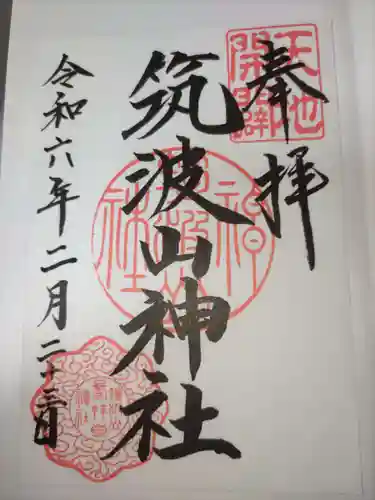 奉拝
天地
開闢
筑波山神社
令和六年二月二十三日